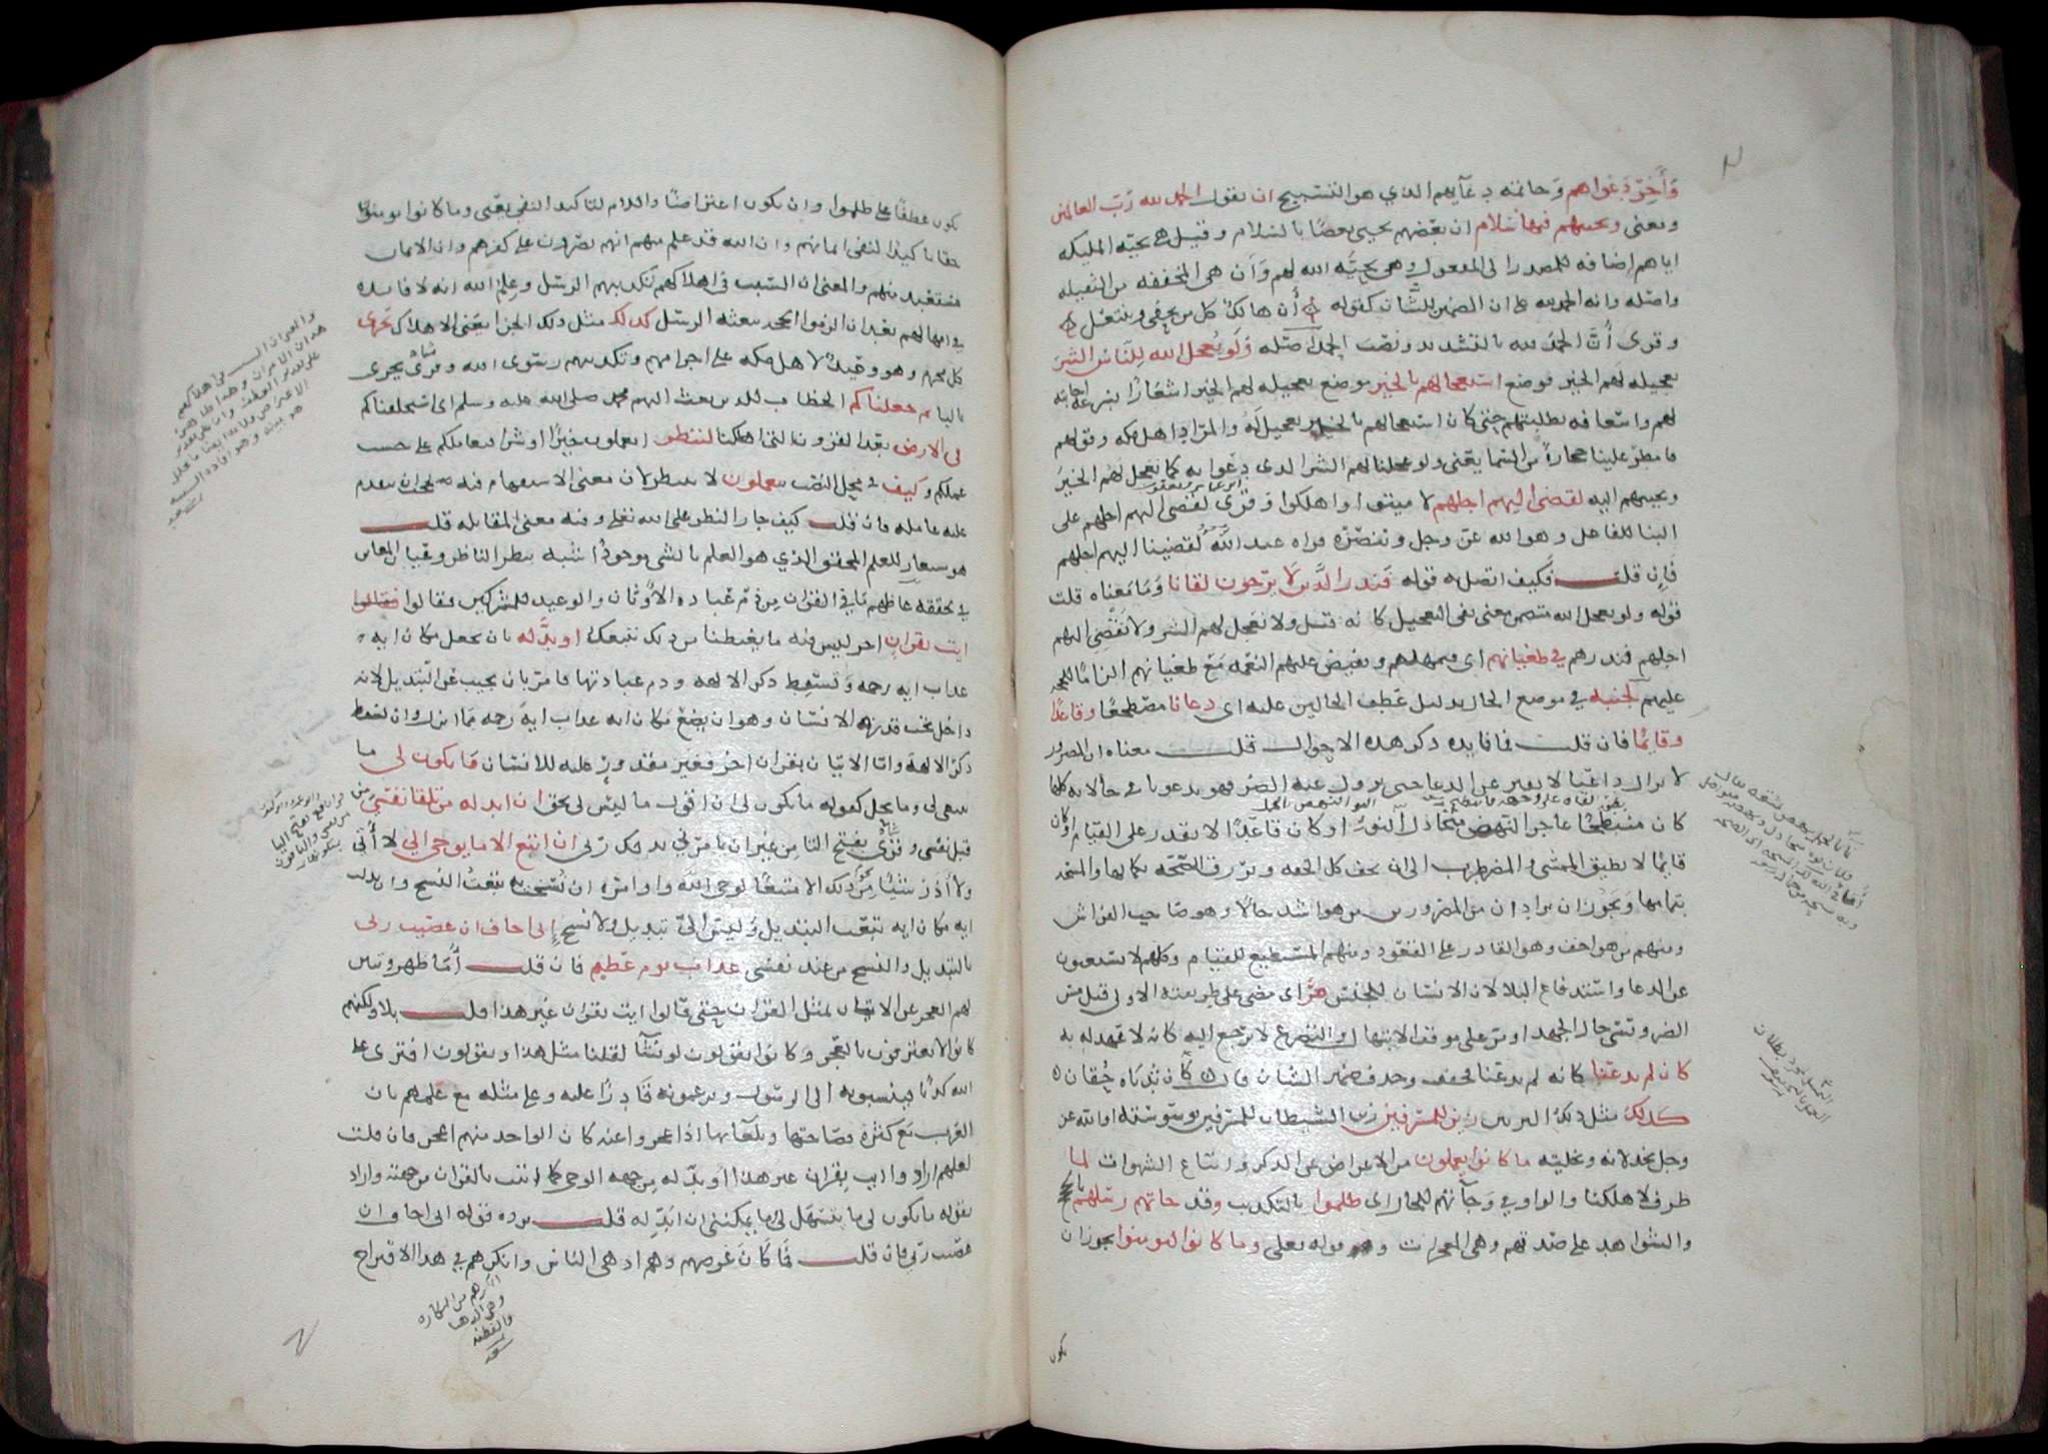 وَأَخِرُ دَعْواهم وخاتمة دعآيهم الذي هو التسبيح ان يقول الحمد لله رَبّ العالمين
ومعنى وتحيتهم فيها سَلام ان بعضهم يحيى بعضًا بالسلام وقيل هى تحيّه المليكه
اياهم إضافه للمصدر الى المفعول وهى تحيَّه الله لهم وَأن هى المخففه من الثقيله
واصله وانه الحمد لله على ان الضمير للشَّان كقوله أن هالك كل من يحفى وينتعل
وقرى أنَّ الحمدَ لله بالتشديد ونصب الحمد اصله وَلَو يُعجل الله لِلنَّاس الشرَ
تعجيله لهم الخير فوضع استعجالهم بالخير موضع تعجيله لهم الخير اشعارًا بسرعة اجابته
لهم واسعافه بطلبتهم حتى كان استعجالهم بالخير تعجيل لهُ والمراد اهل مكه وقولهم
فامطر علينا حجارة من السّما يعنى ولو عجلنا لهم الشر الذى دعَوا به كما نعجل لهم الخيرَ
ونجيبهم اليه لقضى اليهم اجلهم لاميتوا واهلكوا وَقرى لقضى اليهم اجلهم على
البنا للفاعل وهو الله عزّ وجل وتنصُره قراه عبد الله لقضينا اليهم اجلهم
فَإن قلت فكيف اتصل به قوله فَنذر الَّذين لاَ يرْجون لقانا وَمَا مَعناه قلت
قوله ولو يعجل الله متضمن معنى نفى التعجيل كانه قيل ولا نعَجل لهم الشر ولا نَقْضِى اليهم
اجلهم فنذرهم في طغيانهم اى فنمهلهم ونفيض عليهم النعمه مَع طغيانهم الزامًا للحجه
عليهم لجنبه في موضع الحال بدليل عَطف الحالين عليه اى دعانا مضطجعًا وقاعدًا
وقايمًا فان قلت فما فايده ذكر هذه الاحوال قلت معناه ان المضرور
لا يزال داعيًا لا يفتر عن الدعا حتى يزول عنه الضر فهو يدعونا في حالاته كلها
كان منبطحًا عاجز النهض متخاذل النوء او كان قاعدًا لا يقدر على القيام او كان
قايمًا لا يطيق المشى والمضطرب الى ان يخف كل الخفه ويرزق الصّحّه بكمالها والمسحه
بتمامها وَيجَوز ان يراد ان من المضرورين من هو اشد حالاً وهو صاحب الفراش
ومنهم من هو اخف وهو القادر على القعود ومنهم المستطيع للقيام وكلهم لا يستغنون
عن الدعا واستدفاع البلا لان الانسان للجنس مَرَّ اى مضى على طريقته الاولى قبل مسّ
الضر ونسى حال الجهد او مَر على موقف الابتهال والتضرع لا يرجع اليه كانه لا عهد له به
كان لم يدعنا كانه لم يدعنا فخفف وحذف ضمير الشان قال كأن ثدياه حُقان
كذلك مثل ذلك التزيين زين للمسرفين زين الشيطان للمسرفين بوسوسته او الله عز
وجل بخذلانه وتخليته ما كانوا يعملون من الاعراض عن الذكر واتباع الشهوات لما
ظرف لاهلكنا والواو في وَجآتهم للحال اى ظلموا بالتكذيب وقد جاتهم رسلهم
والشواهد على صدقهم وهى المعجزات وقوله تعلى وما كانوا ليومنوا يجوز ان
يكون
يكون عطفًا على ظلموا وان يكون اعتراضًا واللام لتاكيد النفى يعنى وما كانوا يومنون
حقا تاكيدًا لنفى ايمانهم وان الله قد علم منهم انهم يصرون على كفرهم وان الايمان
مستبعد منهم والمعنى ان السّبب في اهلاكهم تكذيبهم الرسل وعلم الله انه لا فايده
في امهالهم بعد ان الزموا الحجه ببعثه الرسل كذلك مثل ذلك الجزا يعنى الاهلاك نجزى
كل مجرم وهو وعيد لاهل مكه على اجرامهم وتكذيبهم رسول الله وقرى يجزى
باليا ثم جعلناكم الخطاب للذين بعث اليهم محمد صلى الله عليه وسلم اى استخلفناكم
في الارض بعَد القرون التى اهلكنا لننظر اتعملون خيرًا او شرا فنعاملكم على حسب
عملكم وَكيف في محل النصب بتعملون لا بننظر لان معنى الاستفهام فيه يحجب ان يتقدم
عليه عامله فان قلت كيف جاز النظر على الله تعَلى وفيه معنى المقابله قلت
هو مستعار للعلم المحقق الذي هو العلم بالشى موجودًا شبه بنظر الناظر وعَيان المعاين
في تحققه غاظهم مَا في القرآن من ذَمّ عبَادة الاَوثان والوعيد للمشركين فقالوا
ايت بقرآن اخر ليس فيه ما يغيظنا من ذلك نتبعك او بدَّله بان تجعل مكان ايه
عذاب ايه رحمه وَتسقط ذكر الالهه وذم عبادتها فامر بان يجيب عن التبديل لانه
داخل تحت قدرَة الانسَان وهو ان يضع مَكان ايه عذاب ايهَ رحمه مما انزل وان يسقط
ذكر الالهة وامّا الاتيان بقرآن اخر فغير مقدور عليه للانسان مَا يكون لى ما
ينبغى لى وما يحل كقوله ما يكون لى ان اقول ما ليس لى بحق ان ابدله من تلقا نفسى من
قبل نفسى وقرى بفتح التا من غير ان يامرني بذلك رَبّى ان اتبع الا ما يوحى الي لا أتى
ولا أذر شيئًا من نحو ذلك الا متبعًا لوحى الله واوامره ان نُسخت ايه تبعتُ النسخ وان بدلت
ايه مكان ايه تبعت التبديل وَليسَ الىّ تبديل ولا نسخ إنى اخاف ان عصيت ربى
بالتبديل والنسخ من عند نفسى عذاب يوم عَظيم فان قلت أمَا ظهر وتبين
لهم العجز عن الاتيان بمثل القران حتى قالوا ايت بقران غير هذا قلت بلا ولكنهم
كانوا لا يعترفون بالعجز وكانوا يقولون لو نشآ لقلنا مثل هذا ويقولون افترى على
الله كذبًا فينسبونه الى الرسول ويزعمونه قَادرًا عليه وعلى مثله مع علمهم بان
العرب مَع كثره فصَاحتها وبلغآيها اذا عجزوا عنه كان الواحد منهم اعجز فان قلت
لعلهم ارادوا ايت بقران غير هذا او بدّله من جهه الوحى كما اتيت بالقران من جهته واراد
بقوله ما يكون لى ما يتسهل لى وما يمكننى ان ابدّله قلت يرده قوله انى اخاف ان
عصيت ربّى فان قلت فَمَا كَانَ غرضهم وهم ادهى الناس وانكرهم في هذا الاقتراح